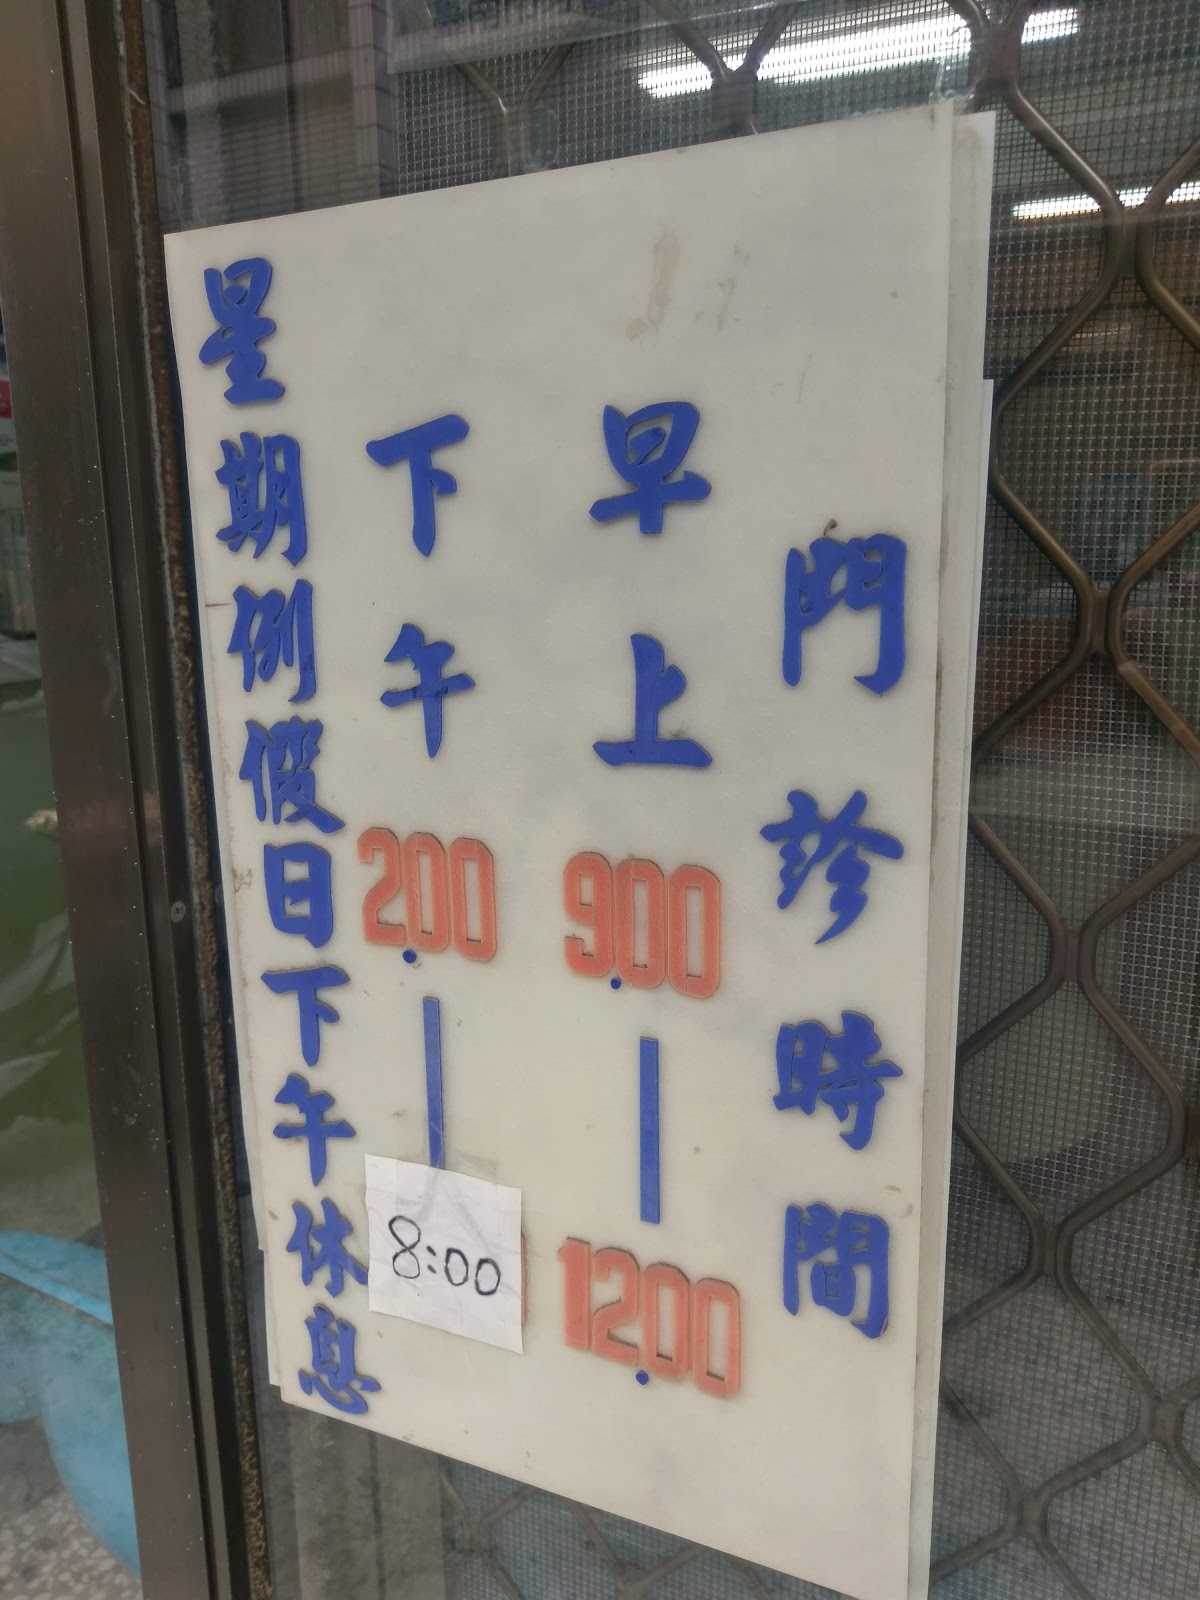 門診時間
早上9.00|12.00
下午2.00|8:00
星期例假日下午休息